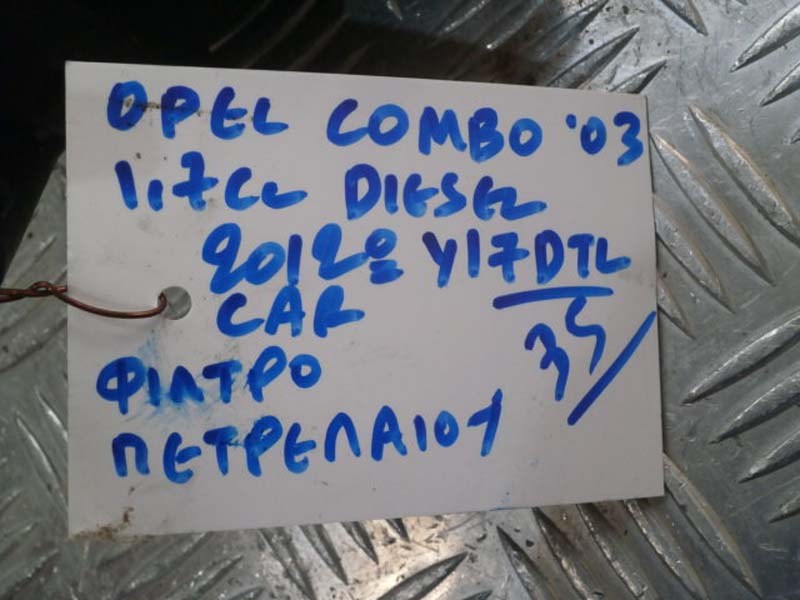 OPEL COMBO '03
1,7CC DIESEL
20120 Y17DTL
CAR 35/
ΦΙΛΤΡΟ
ΠΕΤΡΕΛΑΙΟΥ